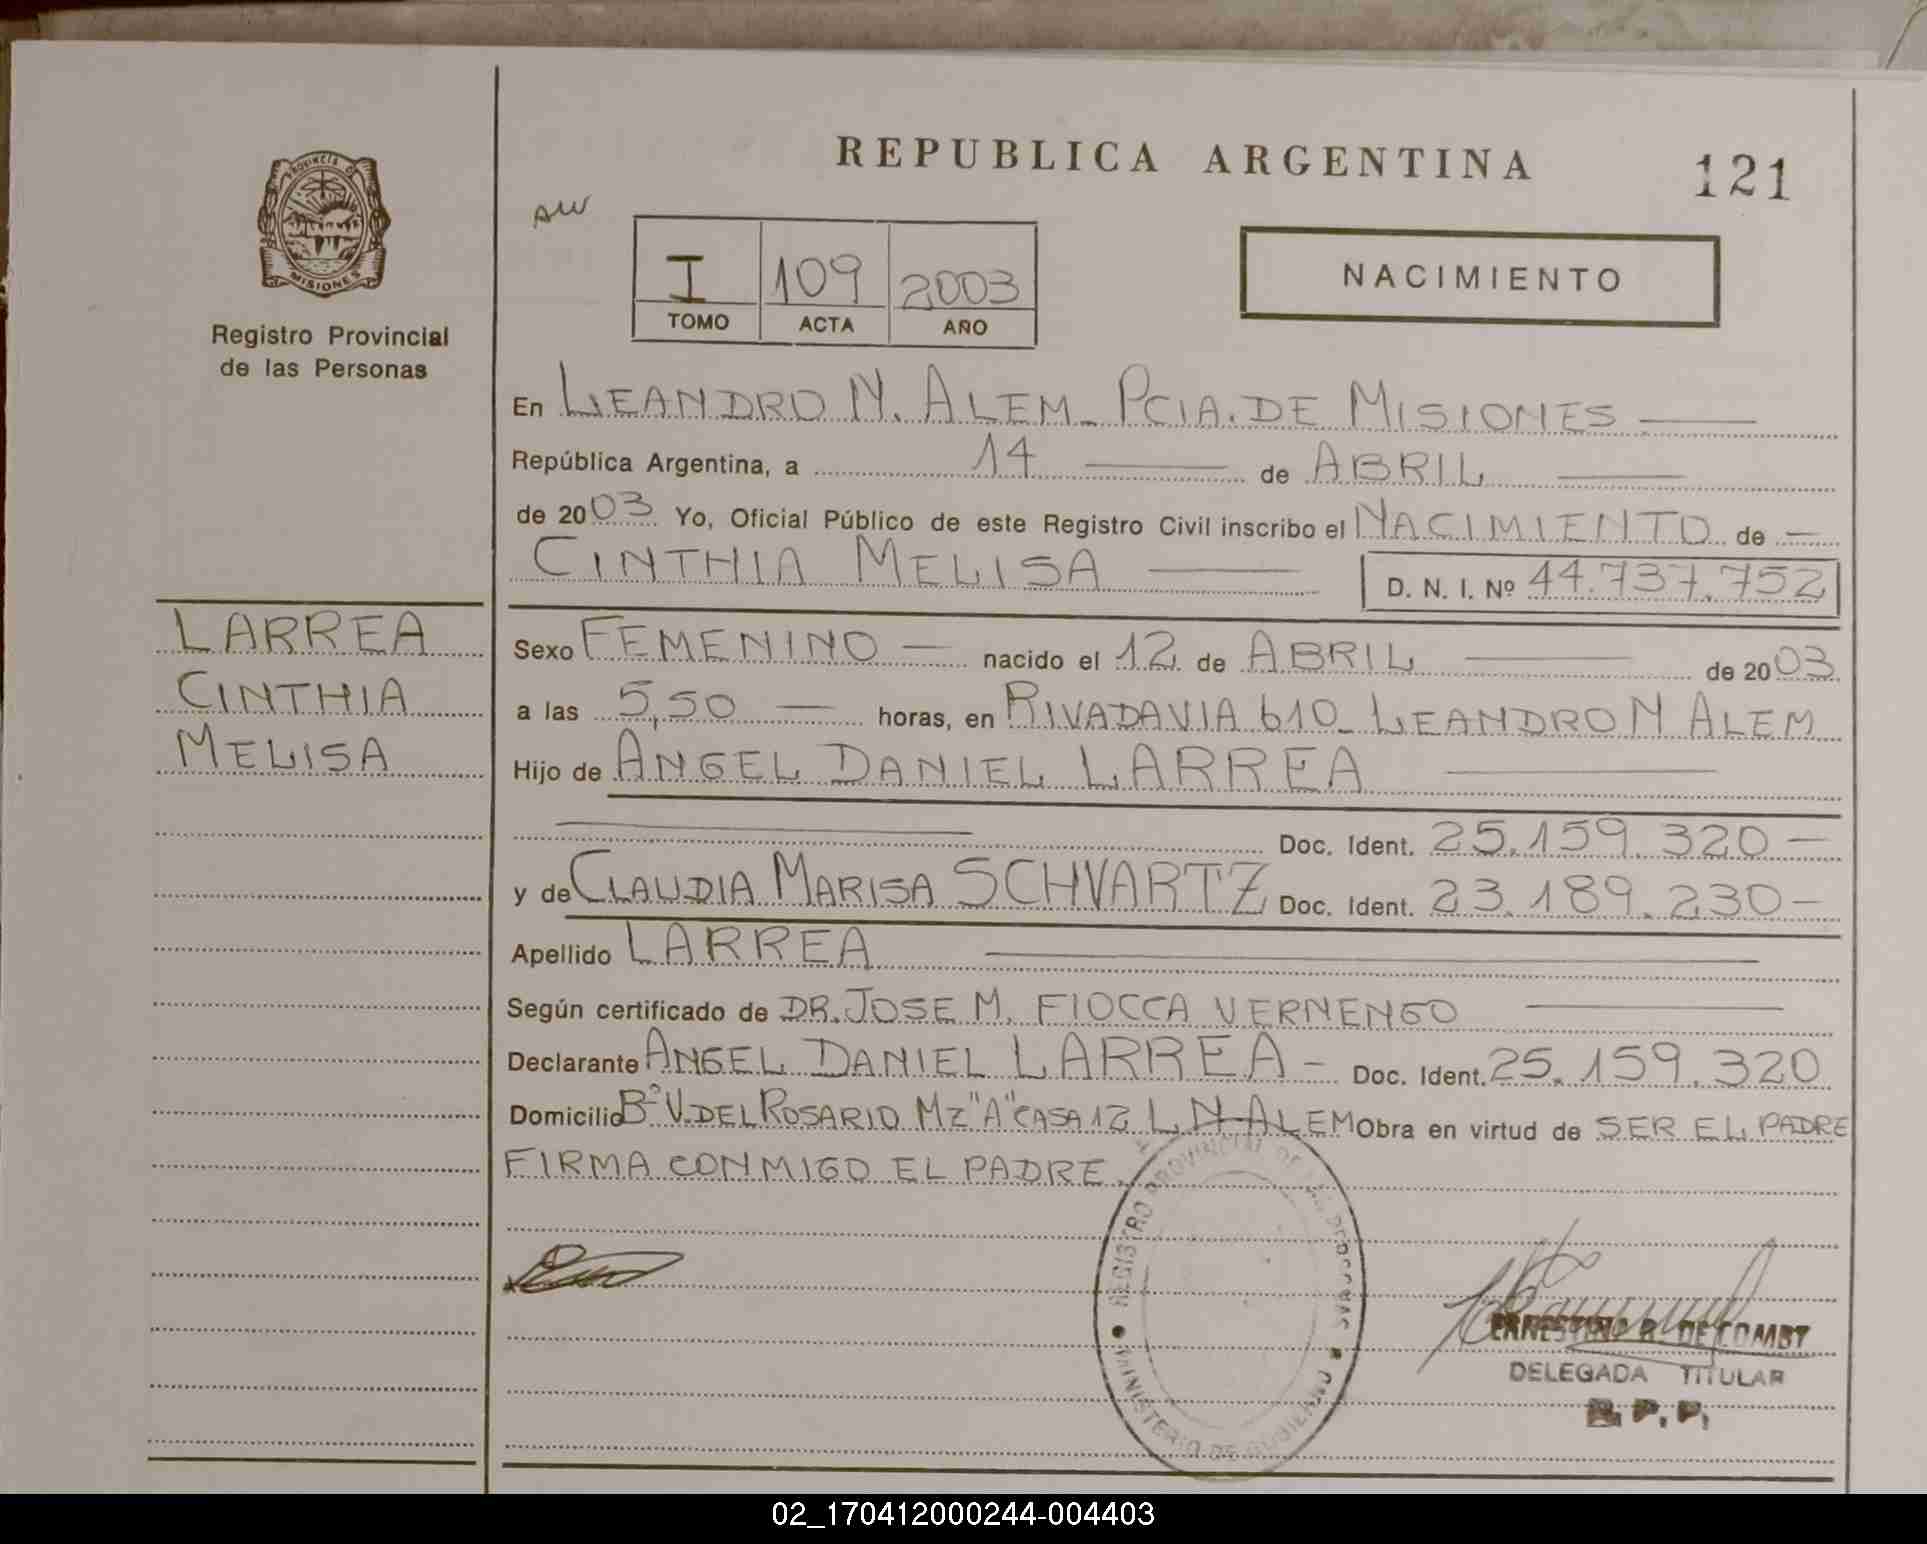 REPUBLICA ARGENTINA
121
PROVINCIA D
MISIONES
Registro Provincial
de las Personas
AW
I 109 2003
TOMO ACTA AÑO
NACIMIENTO
En LEANDRO N. ALEM - PCIA. DE MISIONES
República Argentina, a 14 de ABRIL
de 2003 Yo, Oficial Público de este Registro Civil inscribo el NACIMIENTO de
CINTHIA MELISA
D. N. I. Nº 44.737.752
LARREA
CINTHIA
MELISA
Sexo FEMENINO nacido el 12 de ABRIL de 2003
a las 5,50 horas, en RIVADAVIA 610 - LEANDRO N ALEM
Hijo de ANGEL DANIEL LARREA
Doc. Ident. 25.159.320
y de CLAUDIA MARISA SCHVARTZ Doc. Ident. 23.189.230
Apellido LARREA
Según certificado de DR. JOSE M. FIOCCA VERNENGO
Declarante ANGEL DANIEL LARREA - Doc. Ident. 25.159.320
Domicilio Bº V. DEL ROSARIO MZ "A" CASA 12 L N ALEM Obra en virtud de SER EL PADRE
FIRMA CONMIGO EL PADRE.
REGISTRO PROVINCIAL DE LAS PERSONAS
MINISTERIO DE GOBIERNO
ERNESTINA R. DE COMBY
DELEGADA TITULAR
R. P. P.
02_170412000244-004403